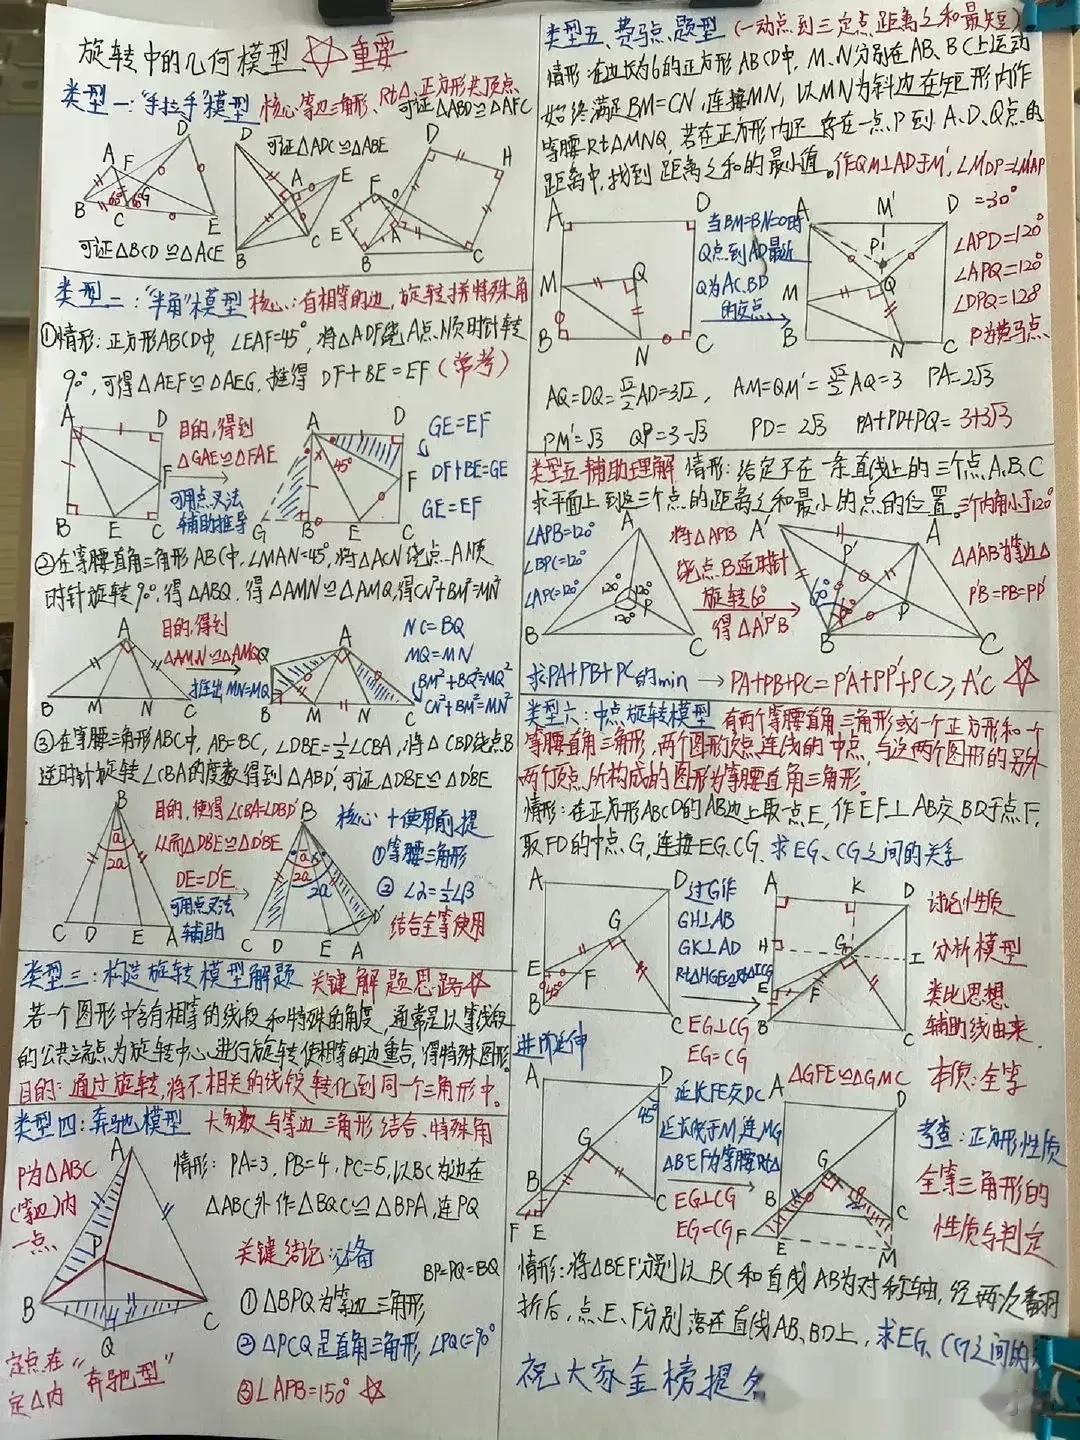 旋转中的几何模型 ☆重要
类型一:"手拉手"模型 核心:等边三角形、Rt△、正方形共顶点
可证△ABD≌△AFC
可证△ADC≌△ABE
可证△BCD≌△ACE
类型二:"半角"模型 核心:有相等的边,旋转拼特殊角
①情形:正方形ABCD中,∠EAF=45°,将△ADF绕A点顺时针转
90°,可得△AEF≌△AEG,推得 DF+BE=EF(常考)
目的,得到
△GAE≌△FAE
可用点叉法
辅助推导
45°
GE=EF
DF+BE=GE
GE=EF
②在等腰直角三角形ABC中,∠MAN=45°,将△ACN绕点A顺
时针旋转90°,得△ABQ,得△AMN≌△AMQ,得CN²+BM²=MN²
目的,得到
△AMN≌△AMQ
推出MN=MQ
NC=BQ
MQ=MN
BM²+BQ²=MQ²
CN²+BM²=MN²
③在等腰三角形ABC中,AB=BC,∠DBE=½∠CBA,将△CBD绕点B
逆时针旋转∠CBA的度数得到△ABD',可证△DBE≌△D'BE
目的,使得∠CBA=∠DBD'
从而△DBE≌△D'BE
DE=D'E
可用点叉法
辅助
核心+使用前提
①等腰三角形
②∠α=½∠β
结合全等使用
类型三:构造旋转模型解题 关键解题思路☆
若一个图形中含有相等的线段和特殊的角度,通常是以等线段
的公共端点为旋转中心进行旋转使相等的边重合,得特殊图形
目的:通过旋转,将不相关的线段转化到同一个三角形中。
类型四:奔驰模型 大多数与等边三角形结合、特殊角
P为△ABC
(等边)内
一点
情形:PA=3,PB=4,PC=5,以BC为边在
△ABC外作△BQC≌△BPA,连PQ
关键结论:必备
BP=PQ=BQ
①△BPQ为等边三角形
②△PCQ是直角三角形,∠PQC=90°
③∠APB=150° ☆
定点在"奔驰型"
定△内
类型五、费马点题型(一动点到三定点距离之和最短)
情形:在边长为6的正方形ABCD中,M、N分别在AB、BC上运动
始终满足BM=CN,连接MN,以MN为斜边在矩形内作
等腰Rt△MNQ,若在正方形内还存在一点P到A、D、Q点的
距离中,找到距离之和的最小值。作QM'⊥AD于M',∠M'DP=∠M'AP
=30°
当BM=BN=0时
Q点到AD最近
Q为AC、BD
的交点
∠APD=120°
∠APQ=120°
∠DPQ=128°
P为费马点
AQ=DQ=√2/2AD=3√2, AM=QM'=√2/2AQ=3 PA=2√3
PM'=√3 QP=3-√3 PD=2√3 PA+PD+PQ=3+3√3
类型五辅助理解 情形:给定不在一条直线上的三个点A、B、C
求平面上到这三个点的距离之和最小的点的位置。三个内角小于120°
∠APB=120°
∠BPC=120°
∠APC=120°
将△APB
绕点B逆时针
旋转60°
得△A'P'B
△A'AB为等边△
P'B=PB=PP'
求PA+PB+PC的min → PA+PB+PC=P'A'+PP'+PC≥A'C ☆
类型六:中点旋转模型 有两个等腰直角三角形或一个正方形和一个
等腰直角三角形,两个图形顶点连线的中点,与这两个图形的另外
两个顶点所构成的图形为等腰直角三角形。
情形:在正方形ABCD的AB边上取一点E,作EF⊥AB交BD于点F,
取FD的中点G,连接EG、CG,求EG、CG之间的关系
过G作
GH⊥AB
GK⊥AD
Rt△HGE≌Rt△ICG
EG⊥CG
EG=CG
讨论性质
分析模型
类比思想
辅助线由来
本质:全等
进阶延伸
延长FE交DC
延长线于M,连MG
△BEF为等腰Rt△
EG⊥CG
EG=CG
△GFE≌△GMC
考查:正方形性质
全等三角形的
性质与判定
情形:将△BEF分别以BC和直线AB为对称轴,经两次翻
折后,点E、F分别落在直线AB、BD上,求EG、CG之间的
祝大家金榜提名